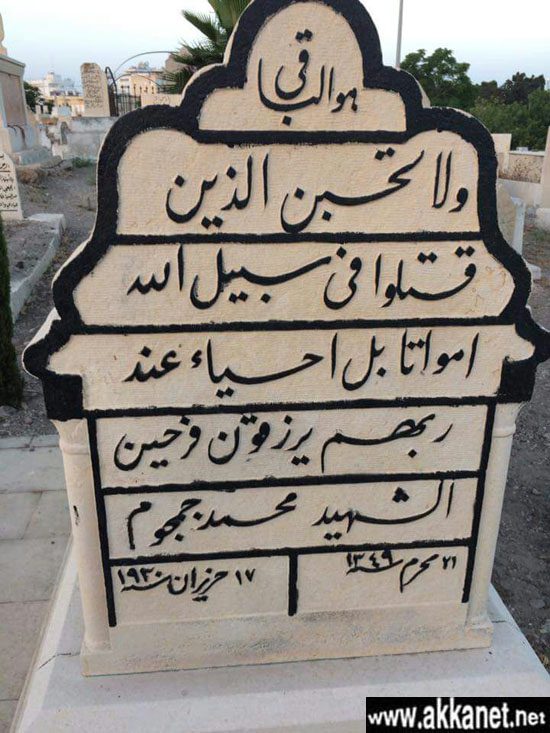 هو الباقي
ولا تحسبن الذين
قتلوا في سبيل الله
امواتا بل احياء عند
ربهم يرزقون فرحين
الشهيد محمد جمجوم
٢١ محرم سنة ١٣٤٩
١٧ حزيران سنة ١٩٣٠
www.akkanet.net